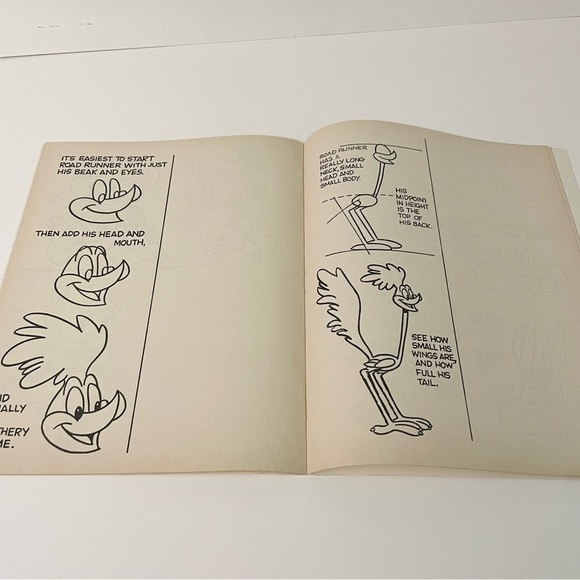 IT'S EASIEST TO START
ROAD RUNNER WITH JUST
HIS BEAK AND EYES.
THEN ADD HIS HEAD AND
MOUTH,
ROAD RUNNER
HAS A
REALLY LONG
NECK, SMALL
HEAD AND
SMALL BODY.
HIS
MIDPOINT
IN HEIGHT
IS THE
TOP OF
HIS BACK.
SEE HOW
SMALL HIS
WINGS ARE,
AND HOW
FULL HIS
TAIL.